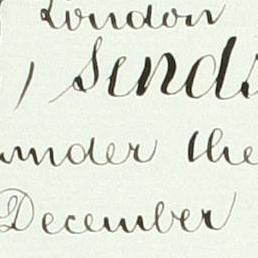 London
, Sends
under the
December